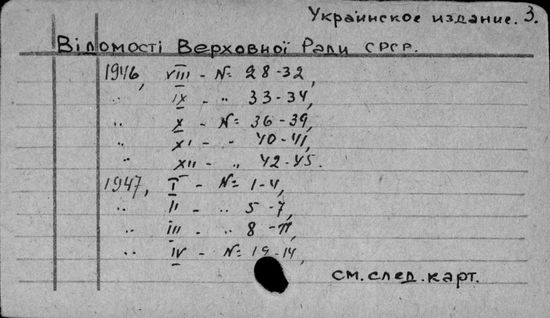 Украинское издание. 3.
Вiдомостi Верховної Ради СРСР.
1946, VIII - № 28-32,
„ IX - „ 33-34,
„ X - № 36-39,
„ XI - „ 40-41,
„ XII - „ 42-45.
1947, I - № 1-4,
„ II - „ 5-7,
„ III - „ 8-11,
„ IV - №
см. след. карт.